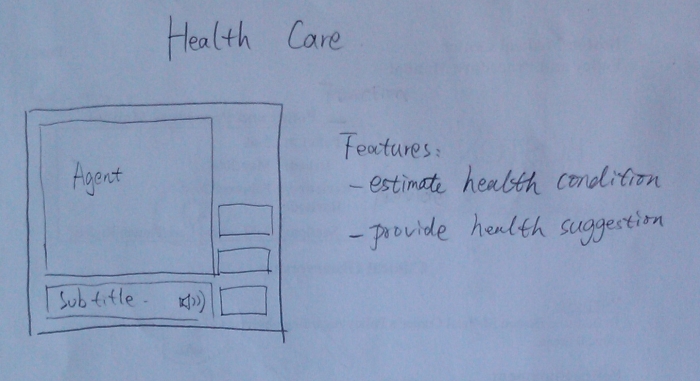 Health Care
Agent
Subtitle.
Features:
- estimate health condition
- provide health suggestion